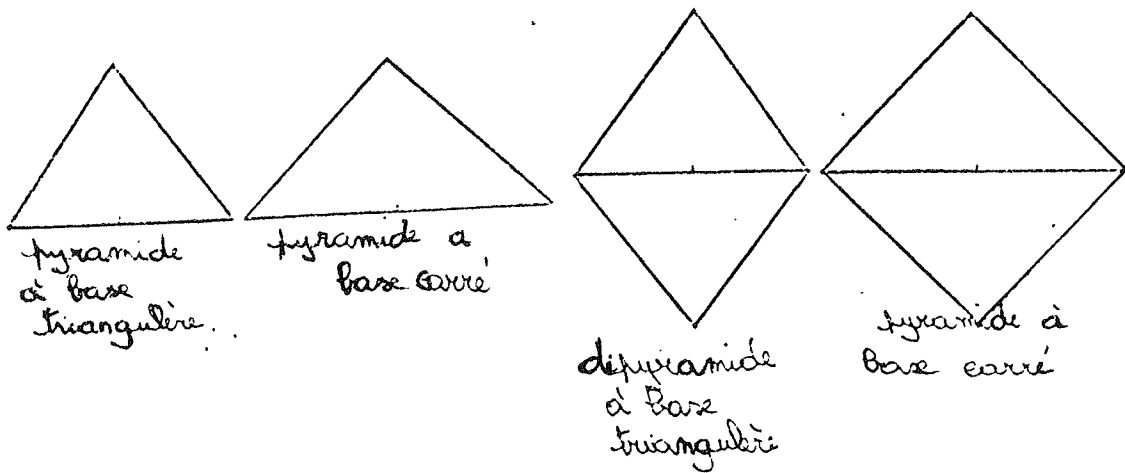 pyramide
à base
triangulère.
pyramide a
base carré
dipyramide
à base
triangulère
pyramide à
base carré